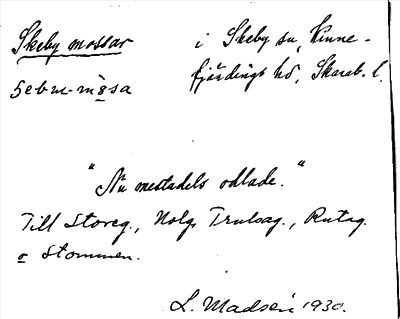 Skeby mossar
i Skeby sn, Kinne-
fjärdings hd, Skarab. l.
"Nu mestadels odlade."
Till Storeg., Nolg.
o Stommen.
L. Madsén 1930.